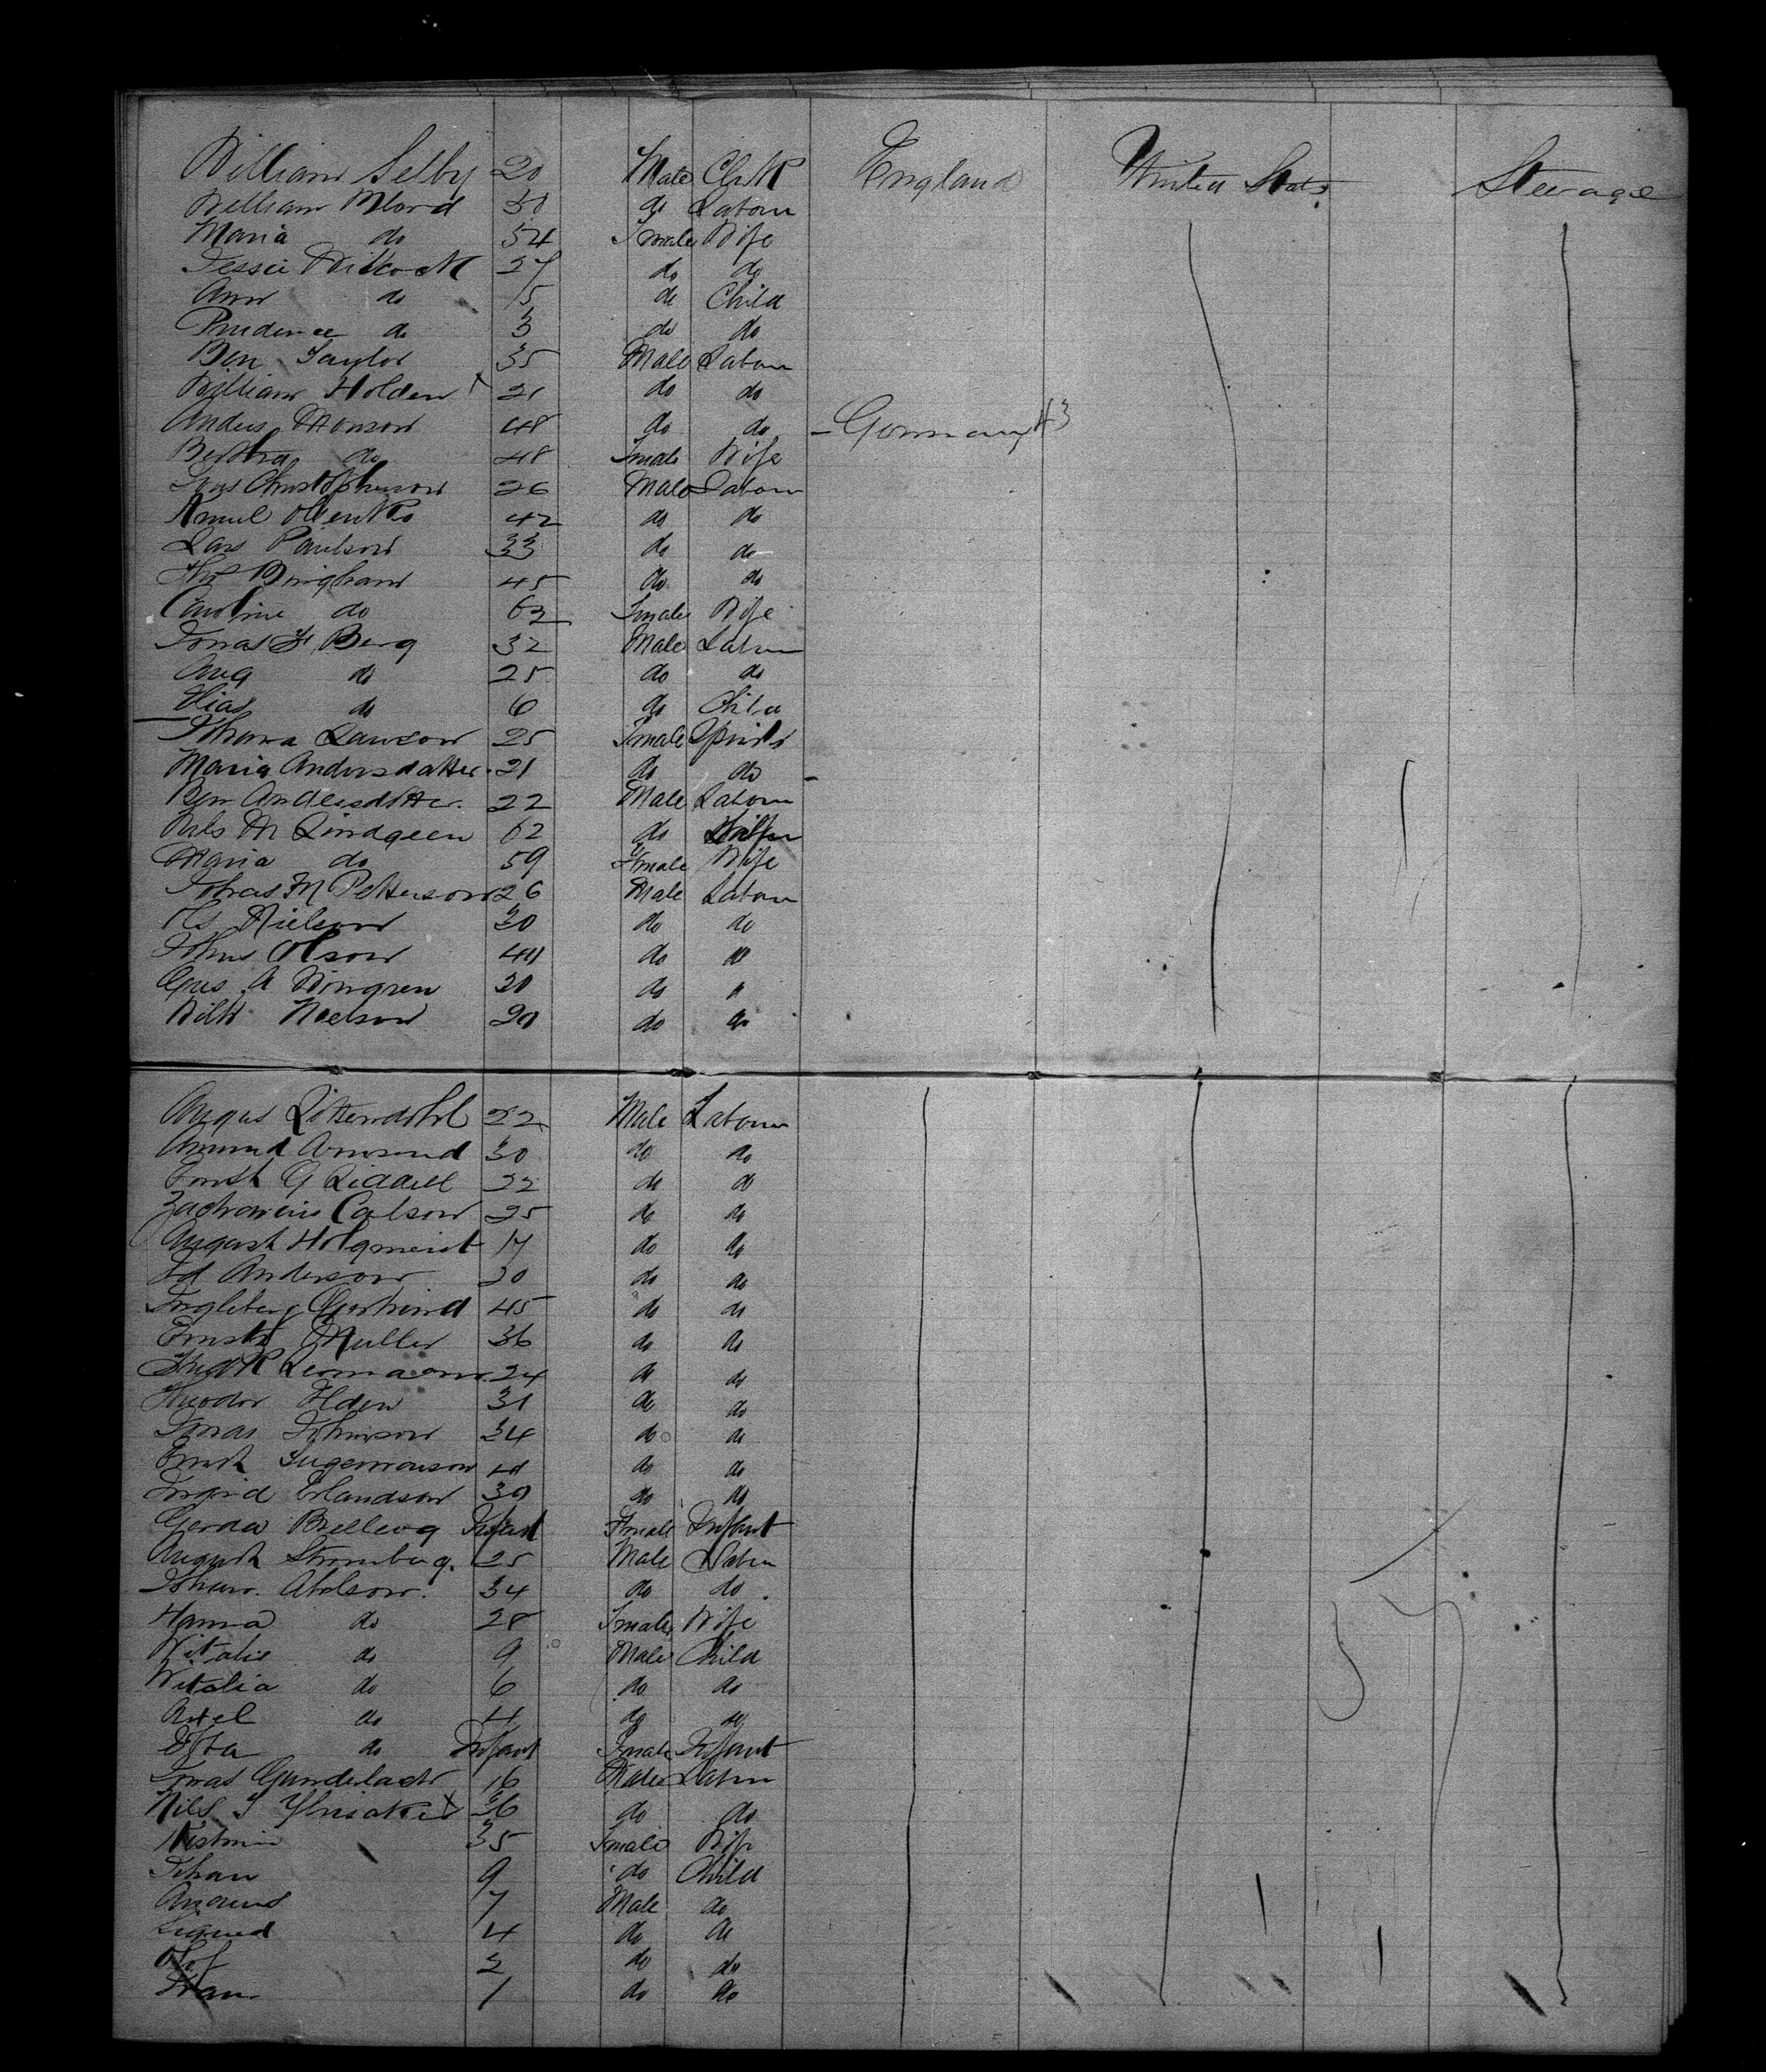 William Selby 20 Male Clerk England United States Steerage
William Ward 50 do Labour
Maria do 54 Female Wife
Jessie Witcock 27 do do
Ann do 5 do Child
Prudence do 3 do do
Ben Taylor 35 Male Labour
William Holden 21 do do
Anders Monson 48 do do Germany
Bertha do 48 Female Wife
Christopherson 26 Male Labour
42 do do
Lars Paulson 33 do do
Bingham 45 do do
Caroline do 62 Female Wife
Jonas F Berg 32 Male Labour
Aug do 25 do do
Elias do 6 do Child
Johana Lawson 25 Female Spinst
Maria Andersdatter 21 do do
Ben Andersdotter 22 Male Labour
Nils M Lindgreen 62 do
Maria do 59 Female Wife
Johas M Petterson 26 Male Labour
Nielson 30 do do
Johns Olson 40 do do
Gus A Wingren 20 do do
Nelson 20 do do
Angus 22 Male Labour
Amund Amund 30 do do
Ernst G Liddell 22 do do
Carlson 25 do do
August Holqmeist 17 do do
Ed Anderson 20 do do
45 do do
Ernst Muller 36 do do
Fredk 24 do do
Theodor Elden 31 do do
Jonas Johnson 34 do do
Ernst do do
Ingrid Erlandson 30 do do
Gerda Infant Female Infant
August Stromberg 25 Male Labour
Johan Abelson 34 do do
Hanna do 28 Female Wife
Witalis do 9 Male Child
Witalia do 6 do do
Axel do 4 do do
do Infant Female Infant
Jonas Gunderlach 16 Male Labour
Nils J 36 do do
35 Female Wife
Johan 9 do Child
7 Male do
Sigurd 4 do do
Olof 2 do do
1 do do